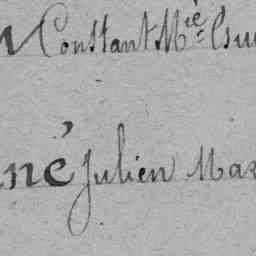 Constant Mie
né Julien Mar